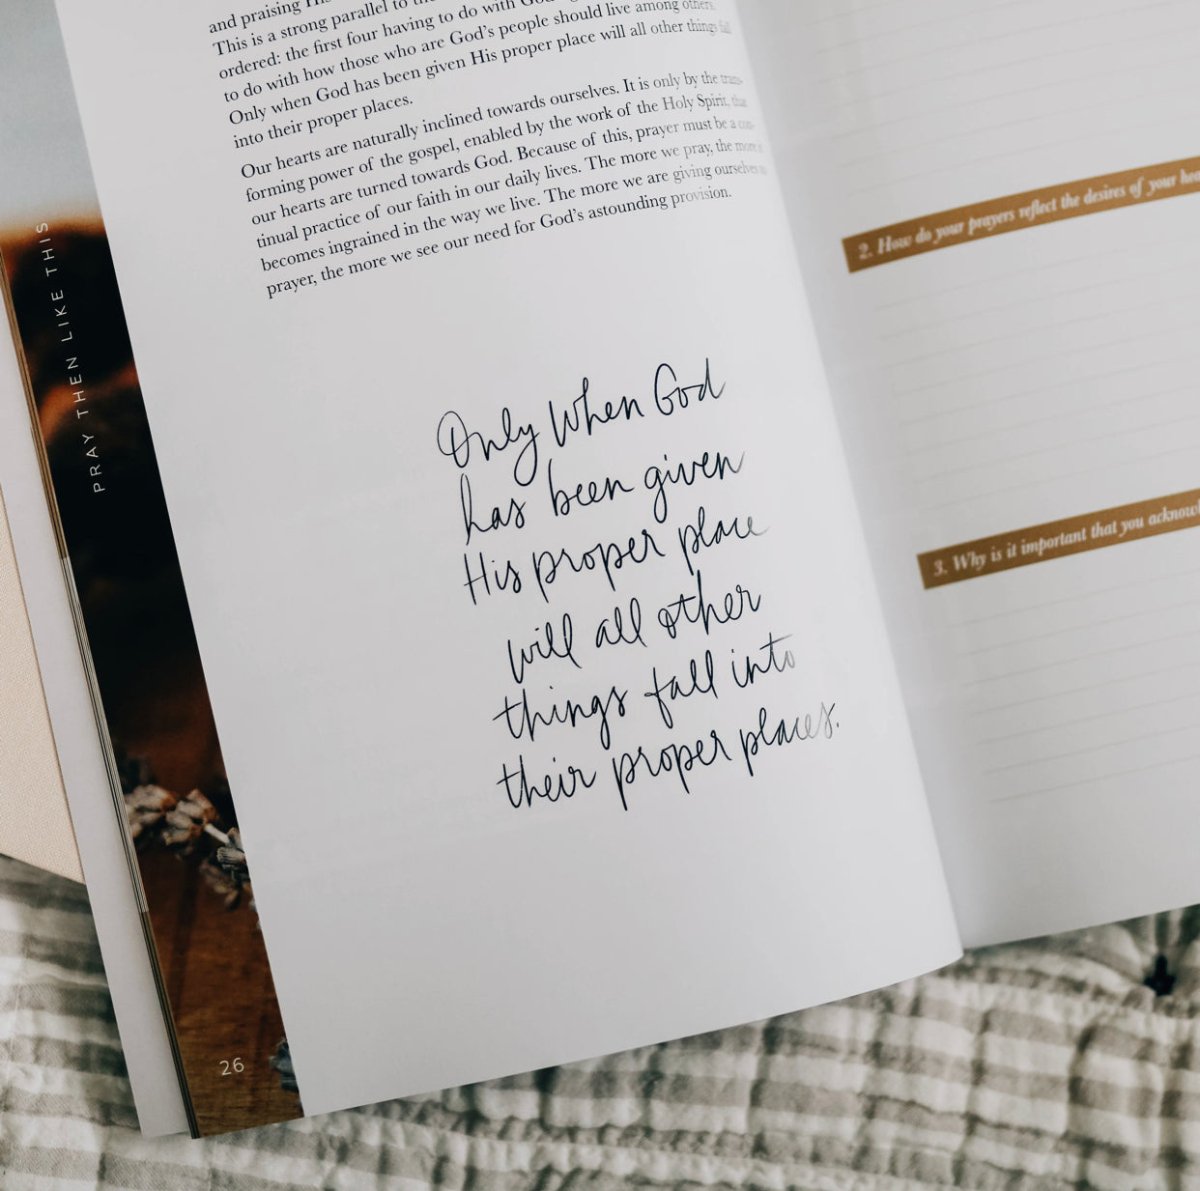 and praising
This is a strong parallel to
ordered: the first four having to do with
to do with how those who are God's people should live among others.
Only when God has been given His proper place will all other things fall
into their proper places.
Our hearts are naturally inclined towards ourselves. It is only by the trans-
forming power of the gospel, enabled by the work of the Holy Spirit, that
our hearts are turned towards God. Because of this, prayer must be a con-
tinual practice of our faith in our daily lives. The more we pray, the more it
becomes ingrained in the way we live. The more we are giving ourselves to
prayer, the more we see our need for God's astounding provision.
Only When God
has been given
His proper place
will all other
things fall into
their proper places.
PRAY THEN LIKE THIS
26
2. How do your prayers reflect the desires of your
3. Why is it important that you